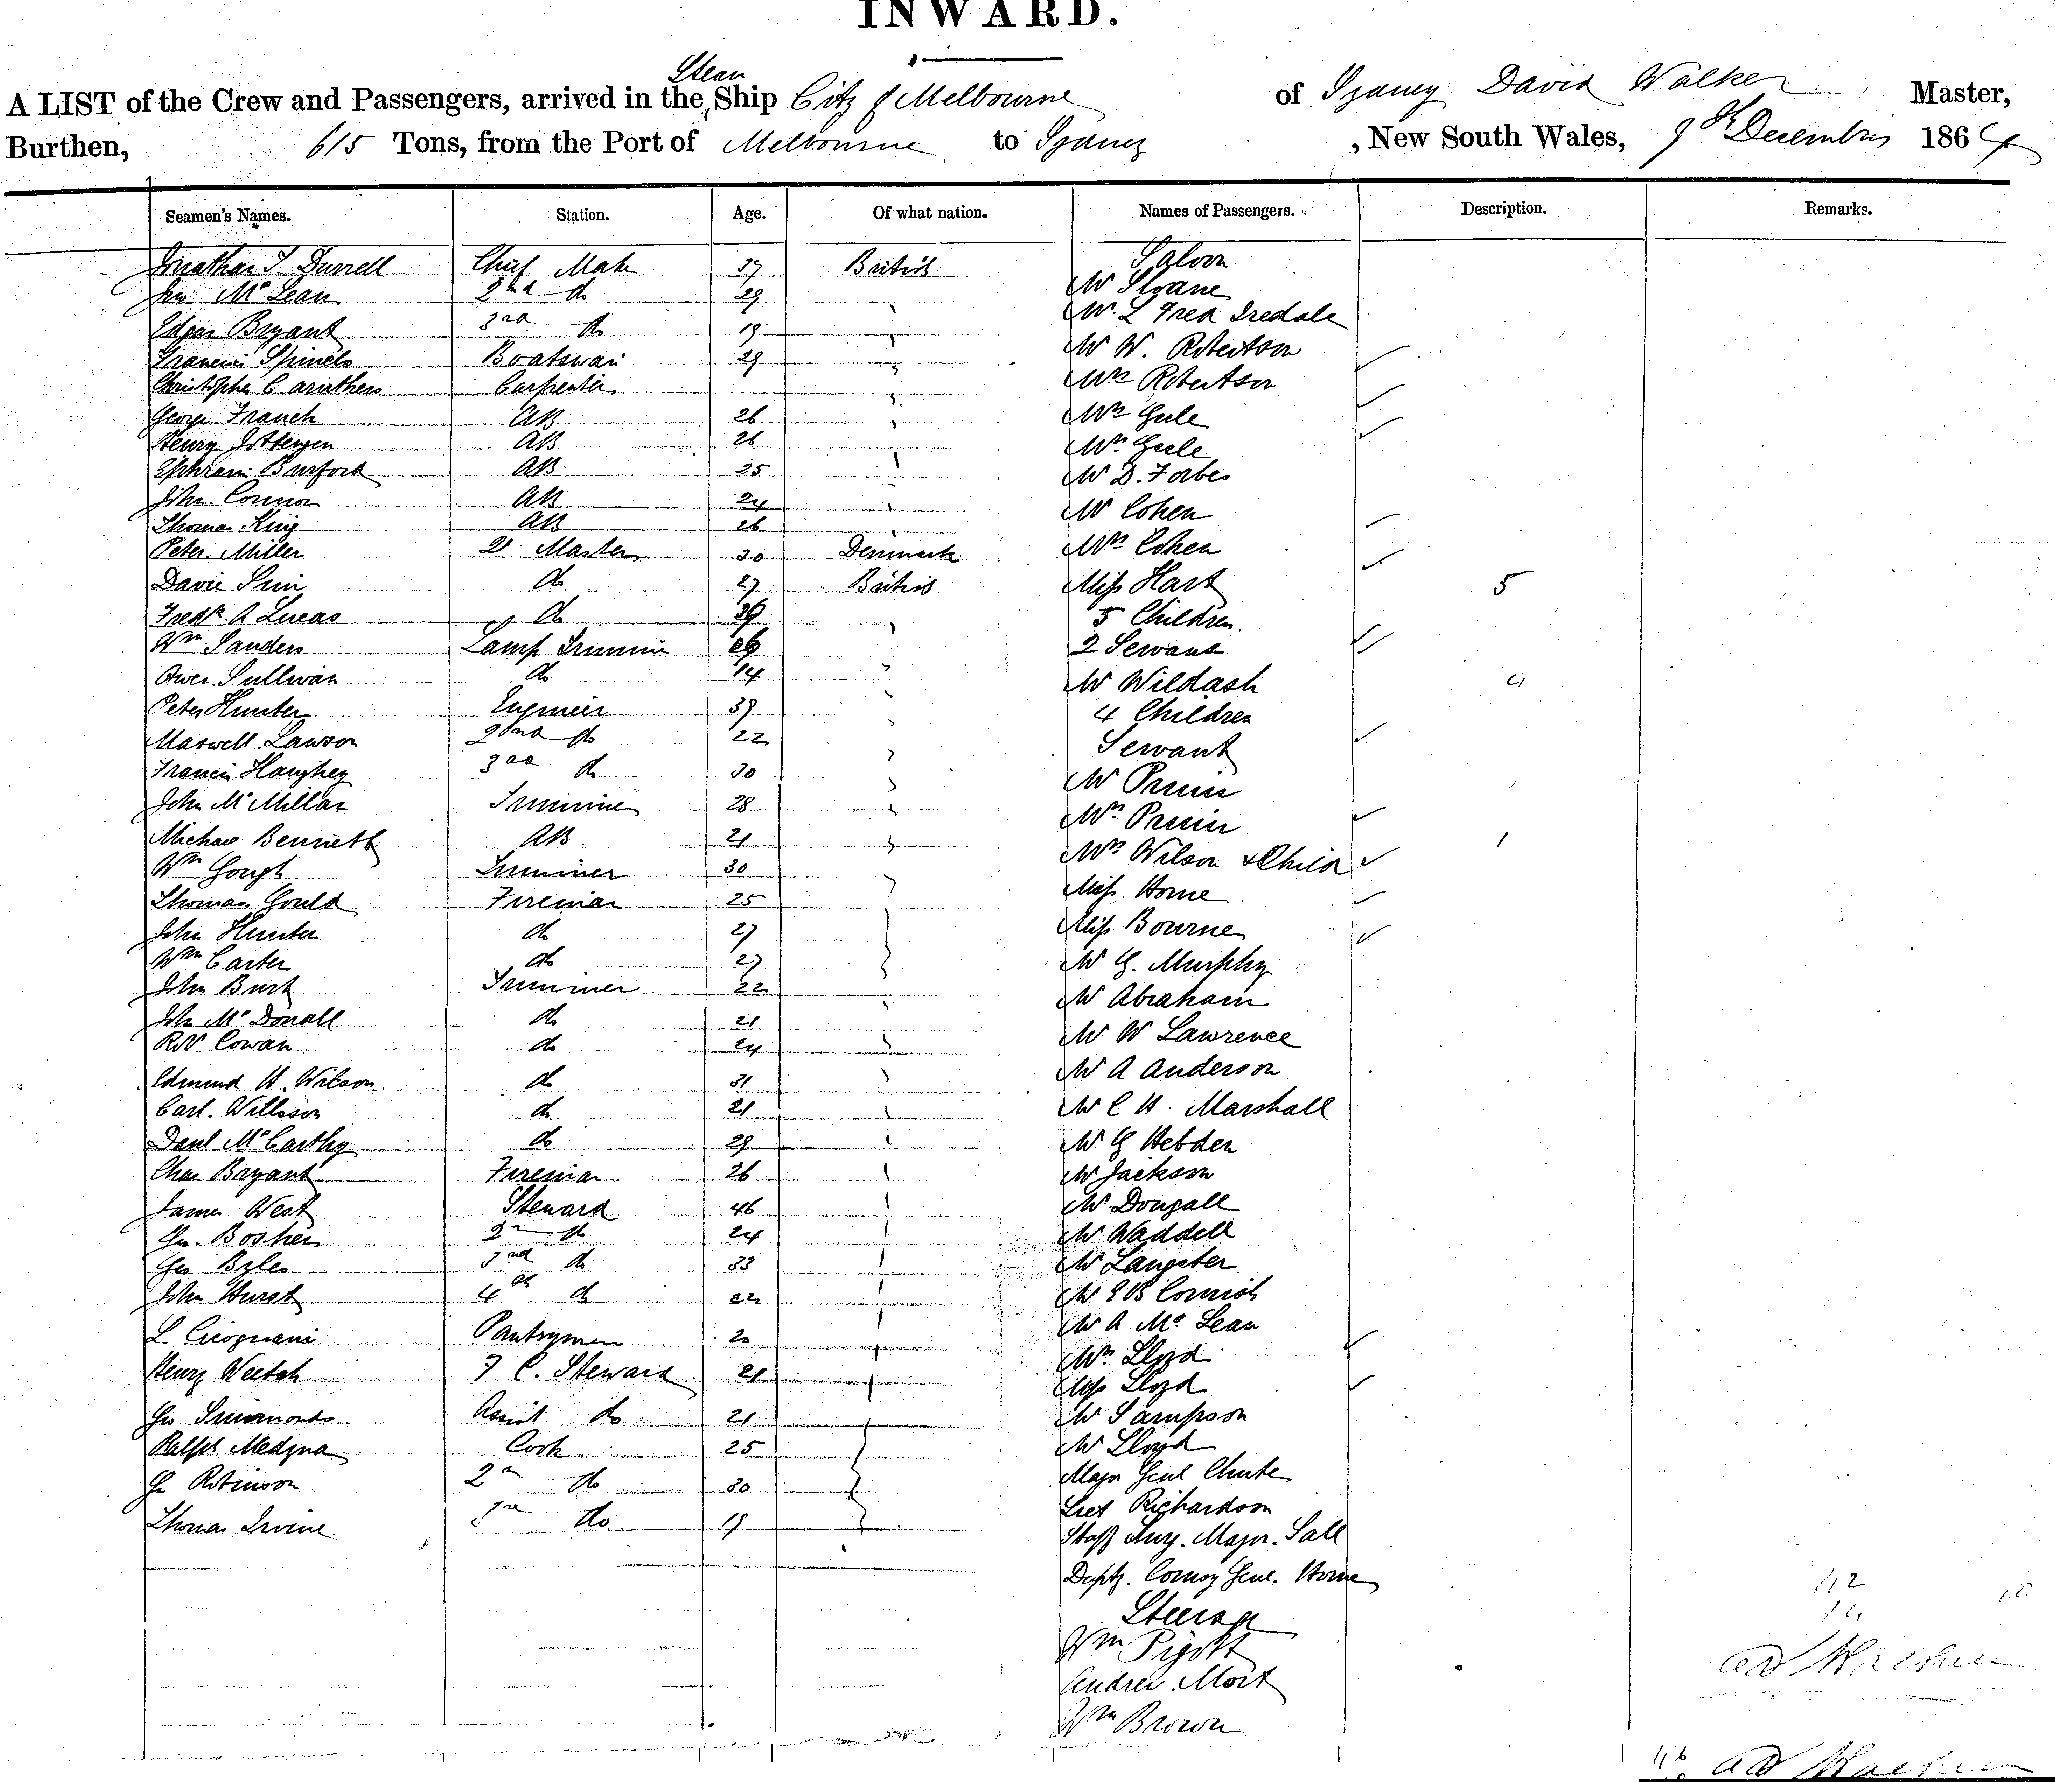 INWARD.
Steam
A LIST of the Crew and Passengers, arrived in the Ship City of Melbourne of Sydney David Walker Master,
Burthen, 615 Tons, from the Port of Melbourne to Sydney , New South Wales, 9th December 1864
Seamen's Names. Station. Age. Of what nation. Names of Passengers. Description. Remarks.
Jonathan T Durrell Chief Mate 37 British Saloon
Jno McLean 2nd do 29 Mr Sloane
Edgar Bryant 3rd do 19 Mr L Fred Iredale
Francis Spinels Boatswain 29 Mr W. Robertson
Christopher Caruthers Carpenter Mrs Robertson
George French AB 26 Mr Geele
Henry AB 26 Mrs Geele
Ephraim Burford AB 25 Mr D. Forbes
John Connor AB 24 Mr Cohen
Thomas King AB 26
Peter Miller Qr Master 30 Denmark Mrs Cohen
David Sim do 27 British Miss Hart 5
Fredk A Lucas do 39 5 Children
Wm Sanders Lamp Trimmer 26 2 Servants
Owen Sullivan do 14 Mr Wildash 4
Peter Hunter Engineer 39 4 Children
Maxwell Lawson 2nd do 22 Servant
Francis Haughey 3rd do 30 Mr
John McMillan Trimmer 28 Mrs
Michael Bennett AB 21 Mrs Wilson & Child 1
Wm Gough Trimmer 30
Thomas Gould Fireman 25 Miss Horne
John Hunter do 27 Miss Bourne
Wm Carter do 27 Mr G. Murphy
John Burt Trimmer 22 Mr Abraham
John McDonall do 21 Mr W Lawrence
Robt Cowan do 24
Edmund H. Wilson do 31 Mr A Anderson
Carl. Willison do 21 Mr C H. Marshall
Danl McCarthy do 29 Mr G Hebden
Chas Bryant Fireman 26 Mr Jackson
James West Steward 46 Mr Dougall
Geo. Boshen 2nd do 24 Mr Waddell
Geo Byles 3rd do 33 Mr Langster
John Hurst 4th do 22 Mr E B Cornish
L. Cicognani Pantryman 20 Mr A McLean
Mrs Lloyd
Henry Veetch F C. Steward 21 Miss Lloyd
Geo Simmonds Assist do 21 Mr Sampson
Ralph Medyna Cook 25 Mr Lloyd
Major Genl Chute
Geo Robinson 2nd do 30 Lieut Richardson
Thomas Irvine 3rd do 19 Staff Surg. Major. Sall
Depty. Comsy Genl. Horne
Steerage
Wm Pigott
Andrew Mort
Wm Brown